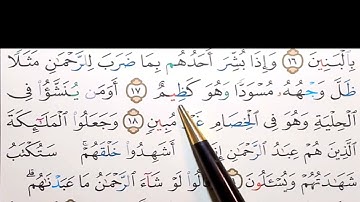 بِٱلۡبَنِينَ ١٦ وَإِذَا بُشِّرَ أَحَدُهُم بِمَا ضَرَبَ لِلرَّحۡمَٰنِ مَثَلٗا
ظَلَّ وَجۡهُهُۥ مُسۡوَدّٗا وَهُوَ كَظِيمٌ ١٧ أَوَمَن يُنَشَّؤُاْ فِي
ٱلۡحِلۡيَةِ وَهُوَ فِي ٱلۡخِصَامِ مُبِينٖ ١٨ وَجَعَلُواْ ٱلۡمَلَٰٓئِكَةَ
ٱلَّذِينَ هُمۡ عِبَٰدُ ٱلرَّحۡمَٰنِ أَشَهِدُواْ خَلۡقَهُمۡۚ سَتُكۡتَبُ
شَهَٰدَتُهُمۡ وَيُسۡـَٔلُونَ لَوۡ شَآءَ ٱلرَّحۡمَٰنُ مَا عَبَدۡنَٰهُمۗ